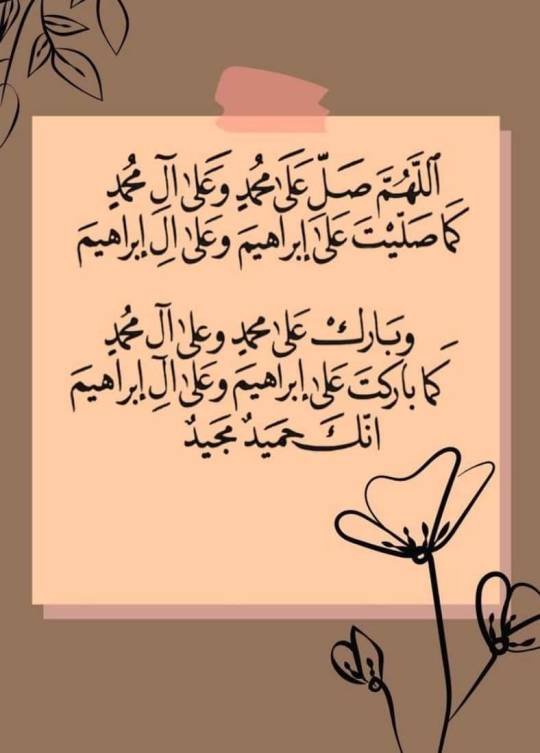 ٱللَّهُمَّ صَلِّ عَلَىٰ مُحَمَّدٍ وَعَلىٰ آلِ مُحَمَّدٍ
كَمَا صَلَّيْتَ عَلىٰ إبراهيمَ وَعَلىٰ آلِ إبراهيمَ
وبَارِكْ عَلىٰ محمدٍ وعلىٰ آلِ مُحمّدٍ
كَما باركتَ عَلىٰ إبراهيمَ وَعَلىٰ آلِ إبراهيمَ
انّكَ حَمَيدٌ مجَيدٌ